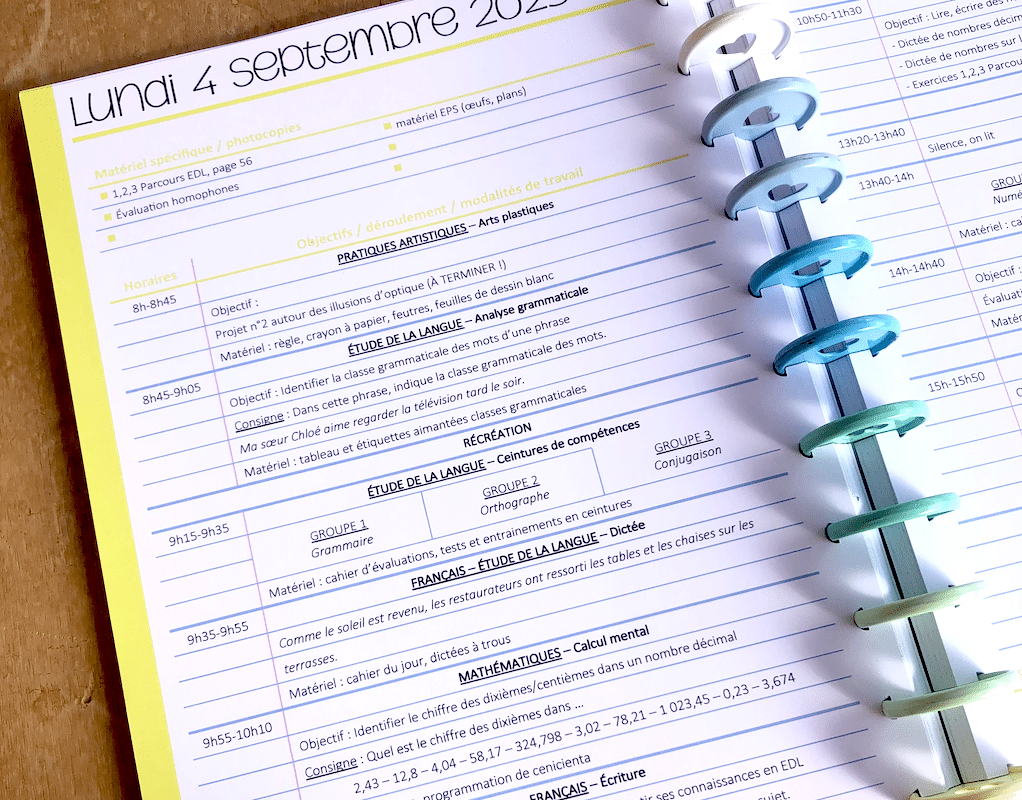 Lundi 4 septembre
Matériel spécifique / photocopies
1,2,3 Parcours EDL, page 56
matériel EPS (œufs, plans)
Évaluation homophones
Horaires
Objectifs / déroulement / modalités de travail
PRATIQUES ARTISTIQUES – Arts plastiques
8h-8h45
Objectif :
Projet n°2 autour des illusions d'optique (À TERMINER !)
Matériel : règle, crayon à papier, feutres, feuilles de dessin blanc
ÉTUDE DE LA LANGUE – Analyse grammaticale
8h45-9h05
Objectif : Identifier la classe grammaticale des mots d'une phrase
Consigne : Dans cette phrase, indique la classe grammaticale des mots.
Ma sœur Chloé aime regarder la télévision tard le soir.
Matériel : tableau et étiquettes aimantées classes grammaticales
RÉCRÉATION
ÉTUDE DE LA LANGUE – Ceintures de compétences
9h15-9h35
GROUPE 1
Grammaire
GROUPE 2
Orthographe
GROUPE 3
Conjugaison
Matériel : cahier d'évaluations, tests et entrainements en ceintures
FRANÇAIS – ÉTUDE DE LA LANGUE – Dictée
9h35-9h55
Comme le soleil est revenu, les restaurateurs ont ressorti les tables et les chaises sur les
terrasses.
Matériel : cahier du jour, dictées à trous
MATHÉMATIQUES – Calcul mental
9h55-10h10
Objectif : Identifier le chiffre des dixièmes/centièmes dans un nombre décimal
Consigne : Quel est le chiffre des dixièmes dans ...
2,43 – 12,8 – 4,04 – 58,17 – 324,798 – 3,02 – 78,21 – 1 023,45 – 0,23 – 3,674
programmation de cenicienta
FRANÇAIS – Écriture
ses connaissances en EDL
10h50-11h30
Objectif : Lire, écrire des
- Dictée de nombres
- Dictée de nombres sur
- Exercices 1,2,3 Parcours
13h20-13h40
Silence, on lit
13h40-14h
14h-14h40
Objectif :
15h-15h50